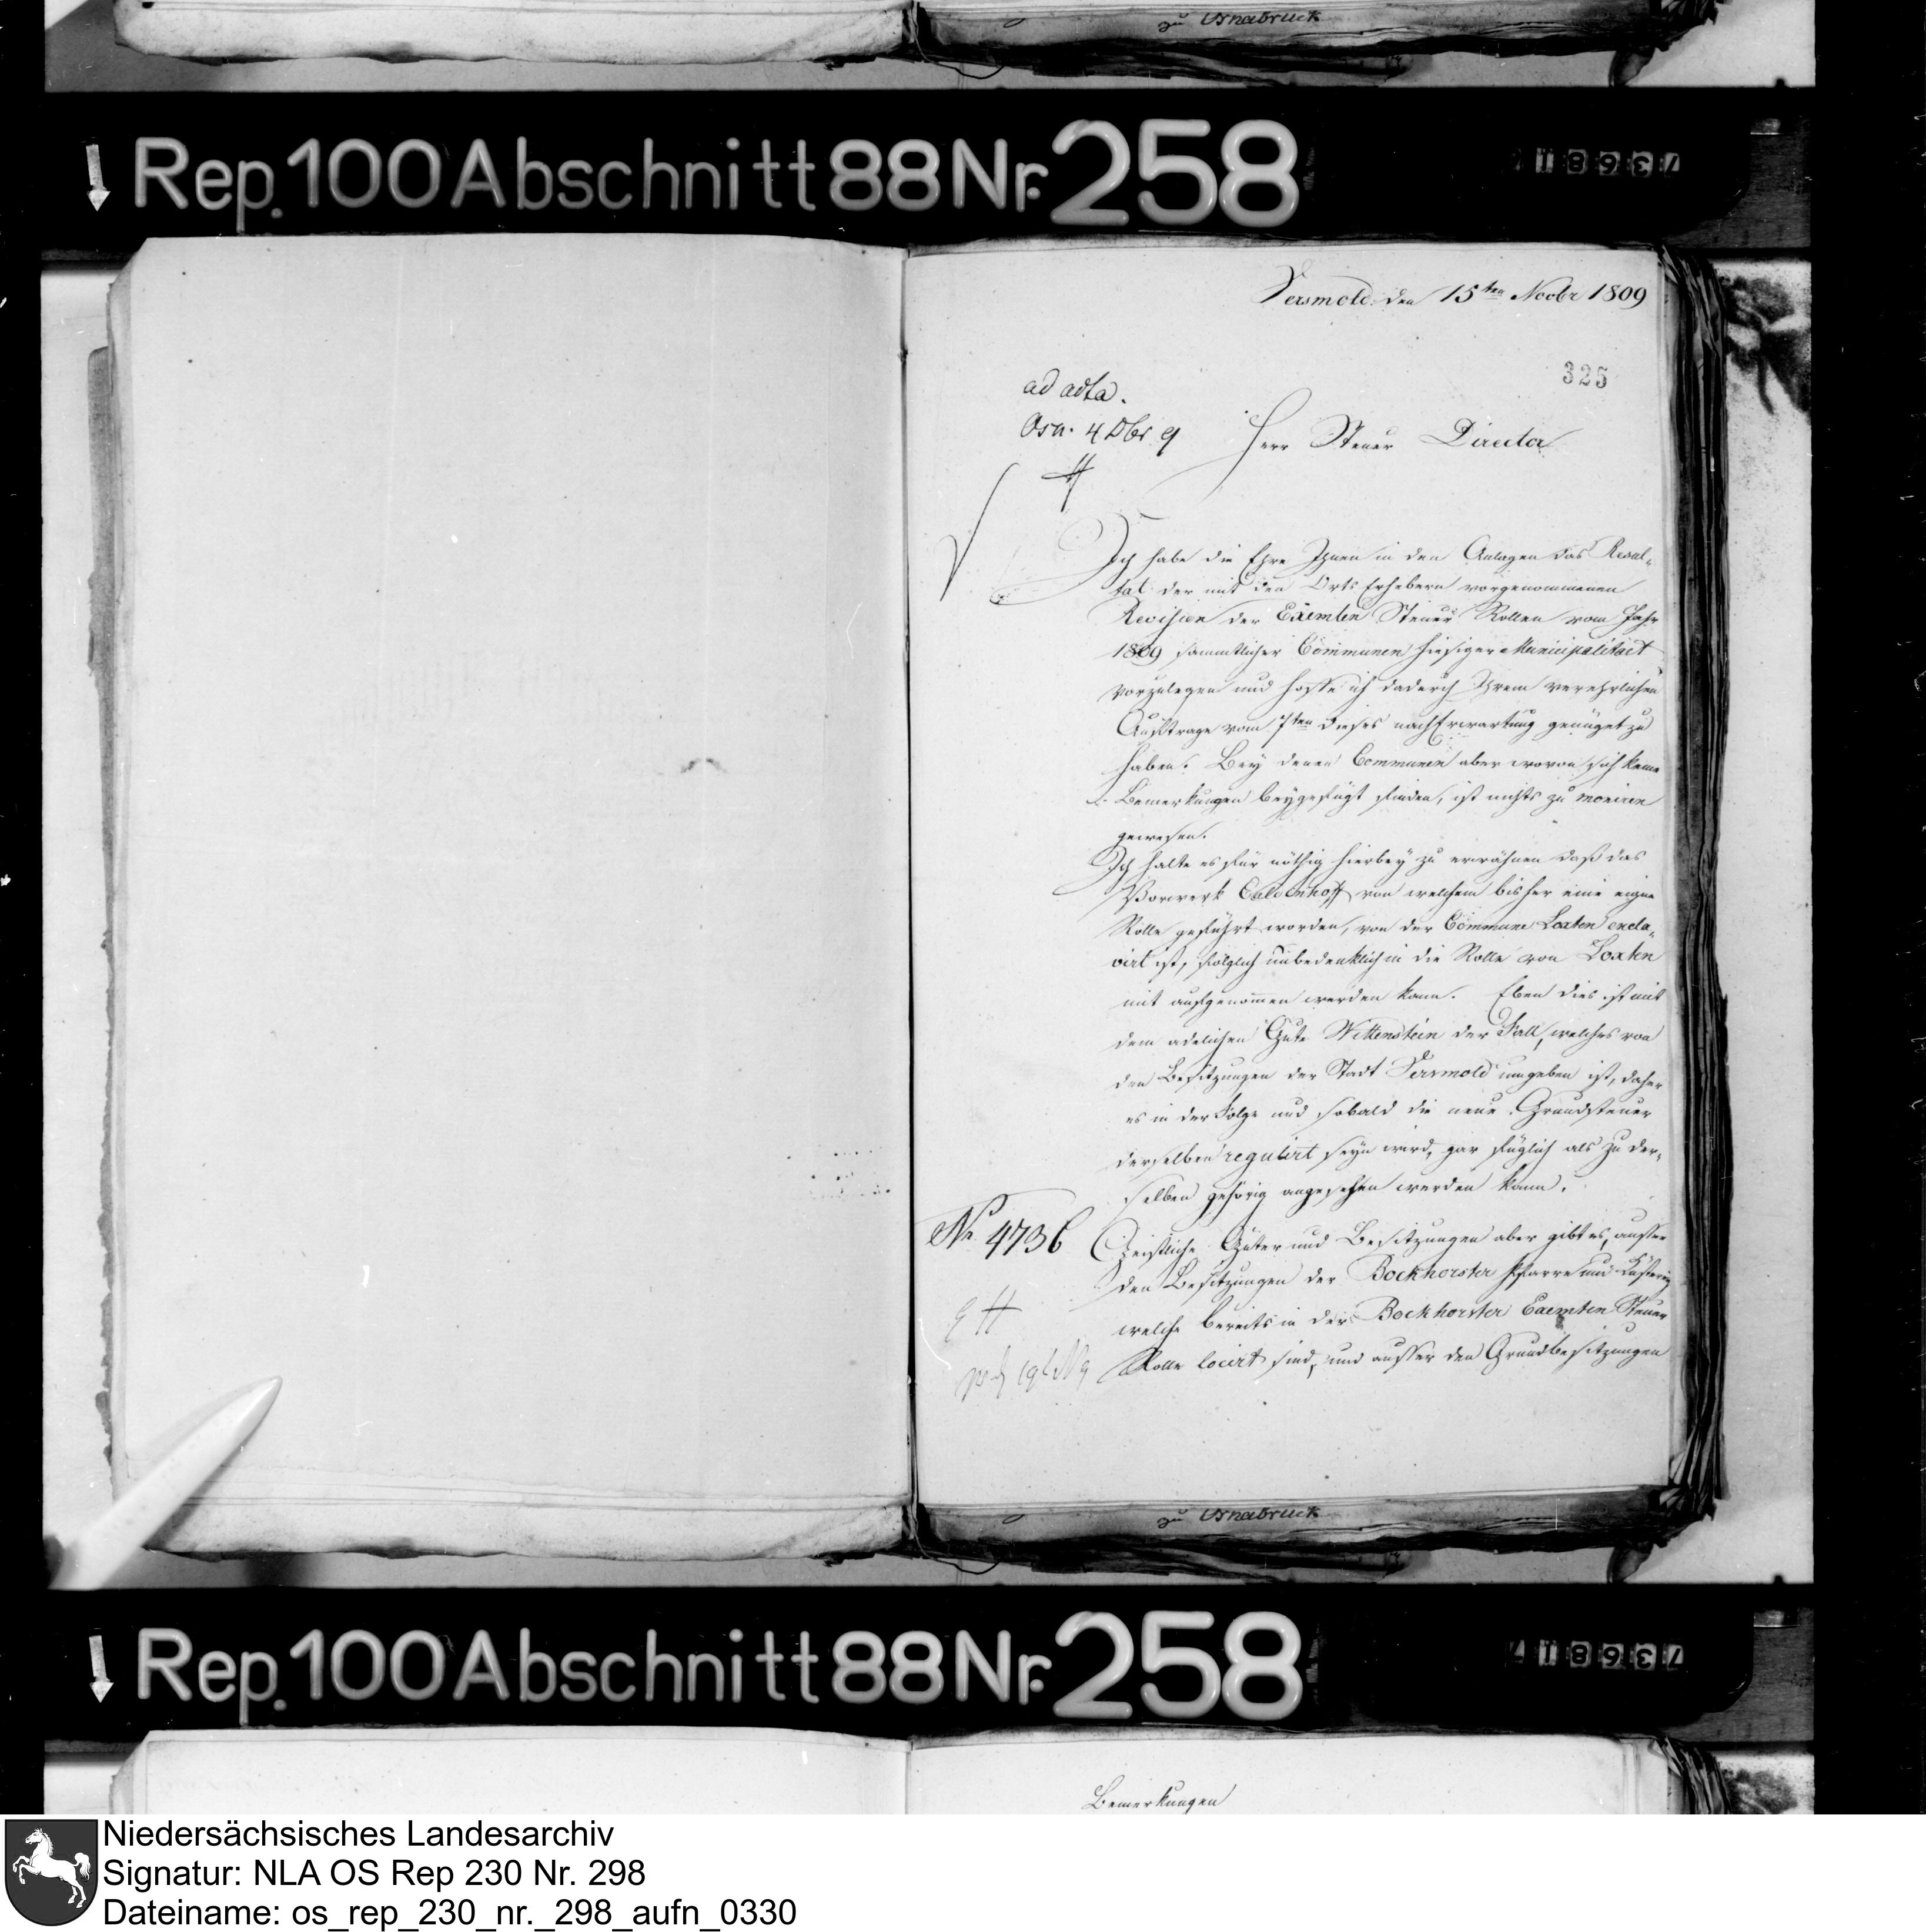 zu Osnabruck
Rep. 100 Abschnitt 88 Nr. 258
736817
Versmold den 15ten Novbr 1809
325
ad acta.
Osn. 4 Dbr 9
Herr Steuer Director
Ich habe die Ehre Ihnen in den Anlagen das Resul-
tat der mit den Orts Erhebern vorgenommenen
Revision der Exemten Steuer Rollen vom Jahr
1809 sammtlicher Communen hiesiger Municipalitaet
vorzulegen und hoffe ich dadurch Ihrem verehrlichen
Auftrage vom 7ten dieses nach Erwartung genüget zu
haben. Bey denen Communen aber wovon sich keine
Bemerkungen beygefügt finden, ist nichts zu moniren
gewesen.
Ich halte es für nöthig hierbey zu erwähnen daß das
Vorwerk Caldenhoff von welchem bisher eine eigne
Rolle geführt worden, von der Commune Loxten encla-
virt ist, folglich unbedenklich in die Rolle von Loxten
mit aufgenommen werden kann. Eben dies ist mit
dem adelichen Gute Wittenstein der Fall, welches von
den Besitzungen der Stadt Versmold umgeben ist, daher
es in der Folge und sobald die neue Grundsteuer
derselben regulirt seyn wird, gar füglich als zu der-
selben gehörig angesehen werden kann.
No. 4736
Geistliche Güter und Besitzungen aber gibt es, ausser
den Besitzungen der Bockhorster Pfarre und Küsterey
welche bereits in der Bockhorster Exemten Steuer
Rolle locirt sind, und ausser den Grundbesitzungen
zu Osnabruck
Rep. 100 Abschnitt 88 Nr. 258
736817
Bemerkungen
Niedersächsisches Landesarchiv
Signatur: NLA OS Rep 230 Nr. 298
Dateiname: os_rep_230_nr._298_aufn_0330